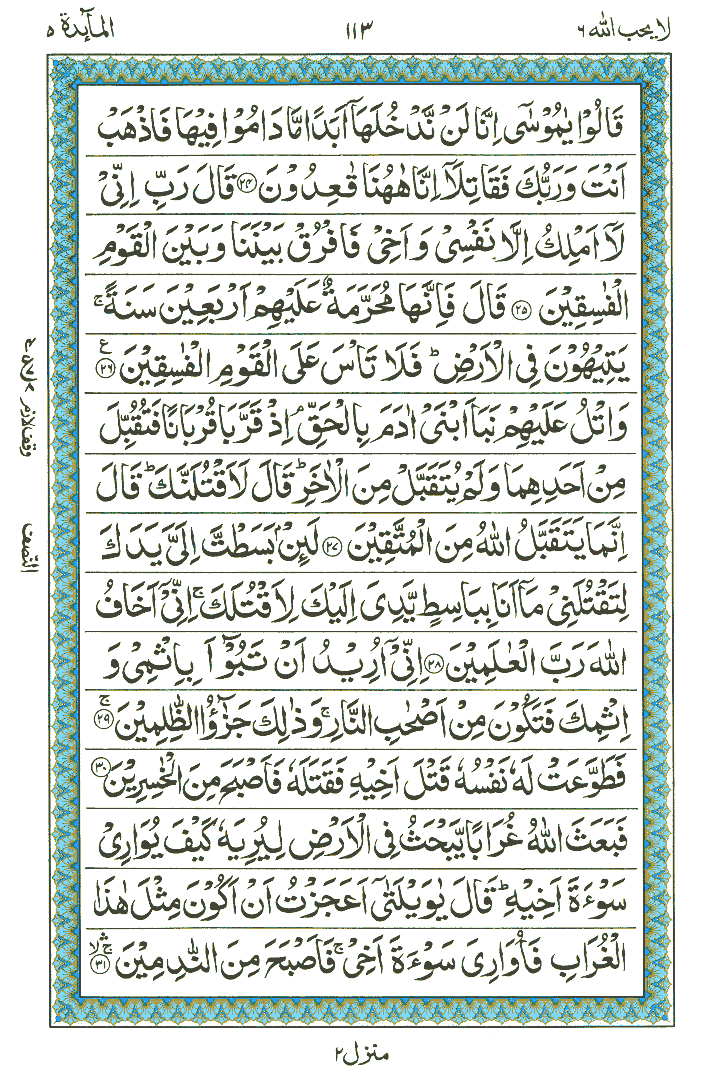 لا يحب الله ٦
١١٣
المآئدة ٥
قَالُوْا يٰمُوْسٰٓى اِنَّا لَنْ نَّدْخُلَهَاۤ اَبَدًا مَّا دَامُوْا فِيْهَا فَاذْهَبْ
اَنْتَ وَرَبُّكَ فَقَاتِلَاۤ اِنَّا هٰهُنَا قٰعِدُوْنَ ﴿٢٤﴾ قَالَ رَبِّ اِنِّيْ
لَاۤ اَمْلِكُ اِلَّا نَفْسِيْ وَاَخِيْ فَافْرُقْ بَيْنَنَا وَبَيْنَ الْقَوْمِ
الْفٰسِقِيْنَ ﴿٢٥﴾ قَالَ فَاِنَّهَا مُحَرَّمَةٌ عَلَيْهِمْ اَرْبَعِيْنَ سَنَةً ۚ
يَتِيْهُوْنَ فِي الْاَرْضِ ؕ فَلَا تَاْسَ عَلَى الْقَوْمِ الْفٰسِقِيْنَ ﴿٢٦﴾ ع
وَاتْلُ عَلَيْهِمْ نَبَاَ ابْنَيْ اٰدَمَ بِالْحَقِّ ۘ اِذْ قَرَّبَا قُرْبَانًا فَتُقُبِّلَ
مِنْ اَحَدِهِمَا وَلَمْ يُتَقَبَّلْ مِنَ الْاٰخَرِ ؕ قَالَ لَاَقْتُلَنَّكَ ؕ قَالَ
اِنَّمَا يَتَقَبَّلُ اللّٰهُ مِنَ الْمُتَّقِيْنَ ﴿٢٧﴾ لَئِنْۢ بَسَطْتَّ اِلَيَّ يَدَكَ
لِتَقْتُلَنِيْ مَاۤ اَنَا بِبَاسِطٍ يَّدِيَ اِلَيْكَ لِاَقْتُلَكَ ۚ اِنِّيْۤ اَخَافُ
اللّٰهَ رَبَّ الْعٰلَمِيْنَ ﴿٢٨﴾ اِنِّيْۤ اُرِيْدُ اَنْ تَبُوْٓاَ بِاِثْمِيْ وَ
اِثْمِكَ فَتَكُوْنَ مِنْ اَصْحٰبِ النَّارِ ۚ وَذٰلِكَ جَزٰٓؤُا الظّٰلِمِيْنَ ۚ ﴿٢٩﴾
فَطَوَّعَتْ لَهٗ نَفْسُهٗ قَتْلَ اَخِيْهِ فَقَتَلَهٗ فَاَصْبَحَ مِنَ الْخٰسِرِيْنَ ﴿٣٠﴾
فَبَعَثَ اللّٰهُ غُرَابًا يَّبْحَثُ فِي الْاَرْضِ لِيُرِيَهٗ كَيْفَ يُوَارِيْ
سَوْءَةَ اَخِيْهِ ؕ قَالَ يٰوَيْلَتٰۤى اَعَجَزْتُ اَنْ اَكُوْنَ مِثْلَ هٰذَا
الْغُرَابِ فَاُوَارِيَ سَوْءَةَ اَخِيْ ۚ فَاَصْبَحَ مِنَ النّٰدِمِيْنَ ﴿٣١﴾
وقف لازم
النصف
منزل ٢